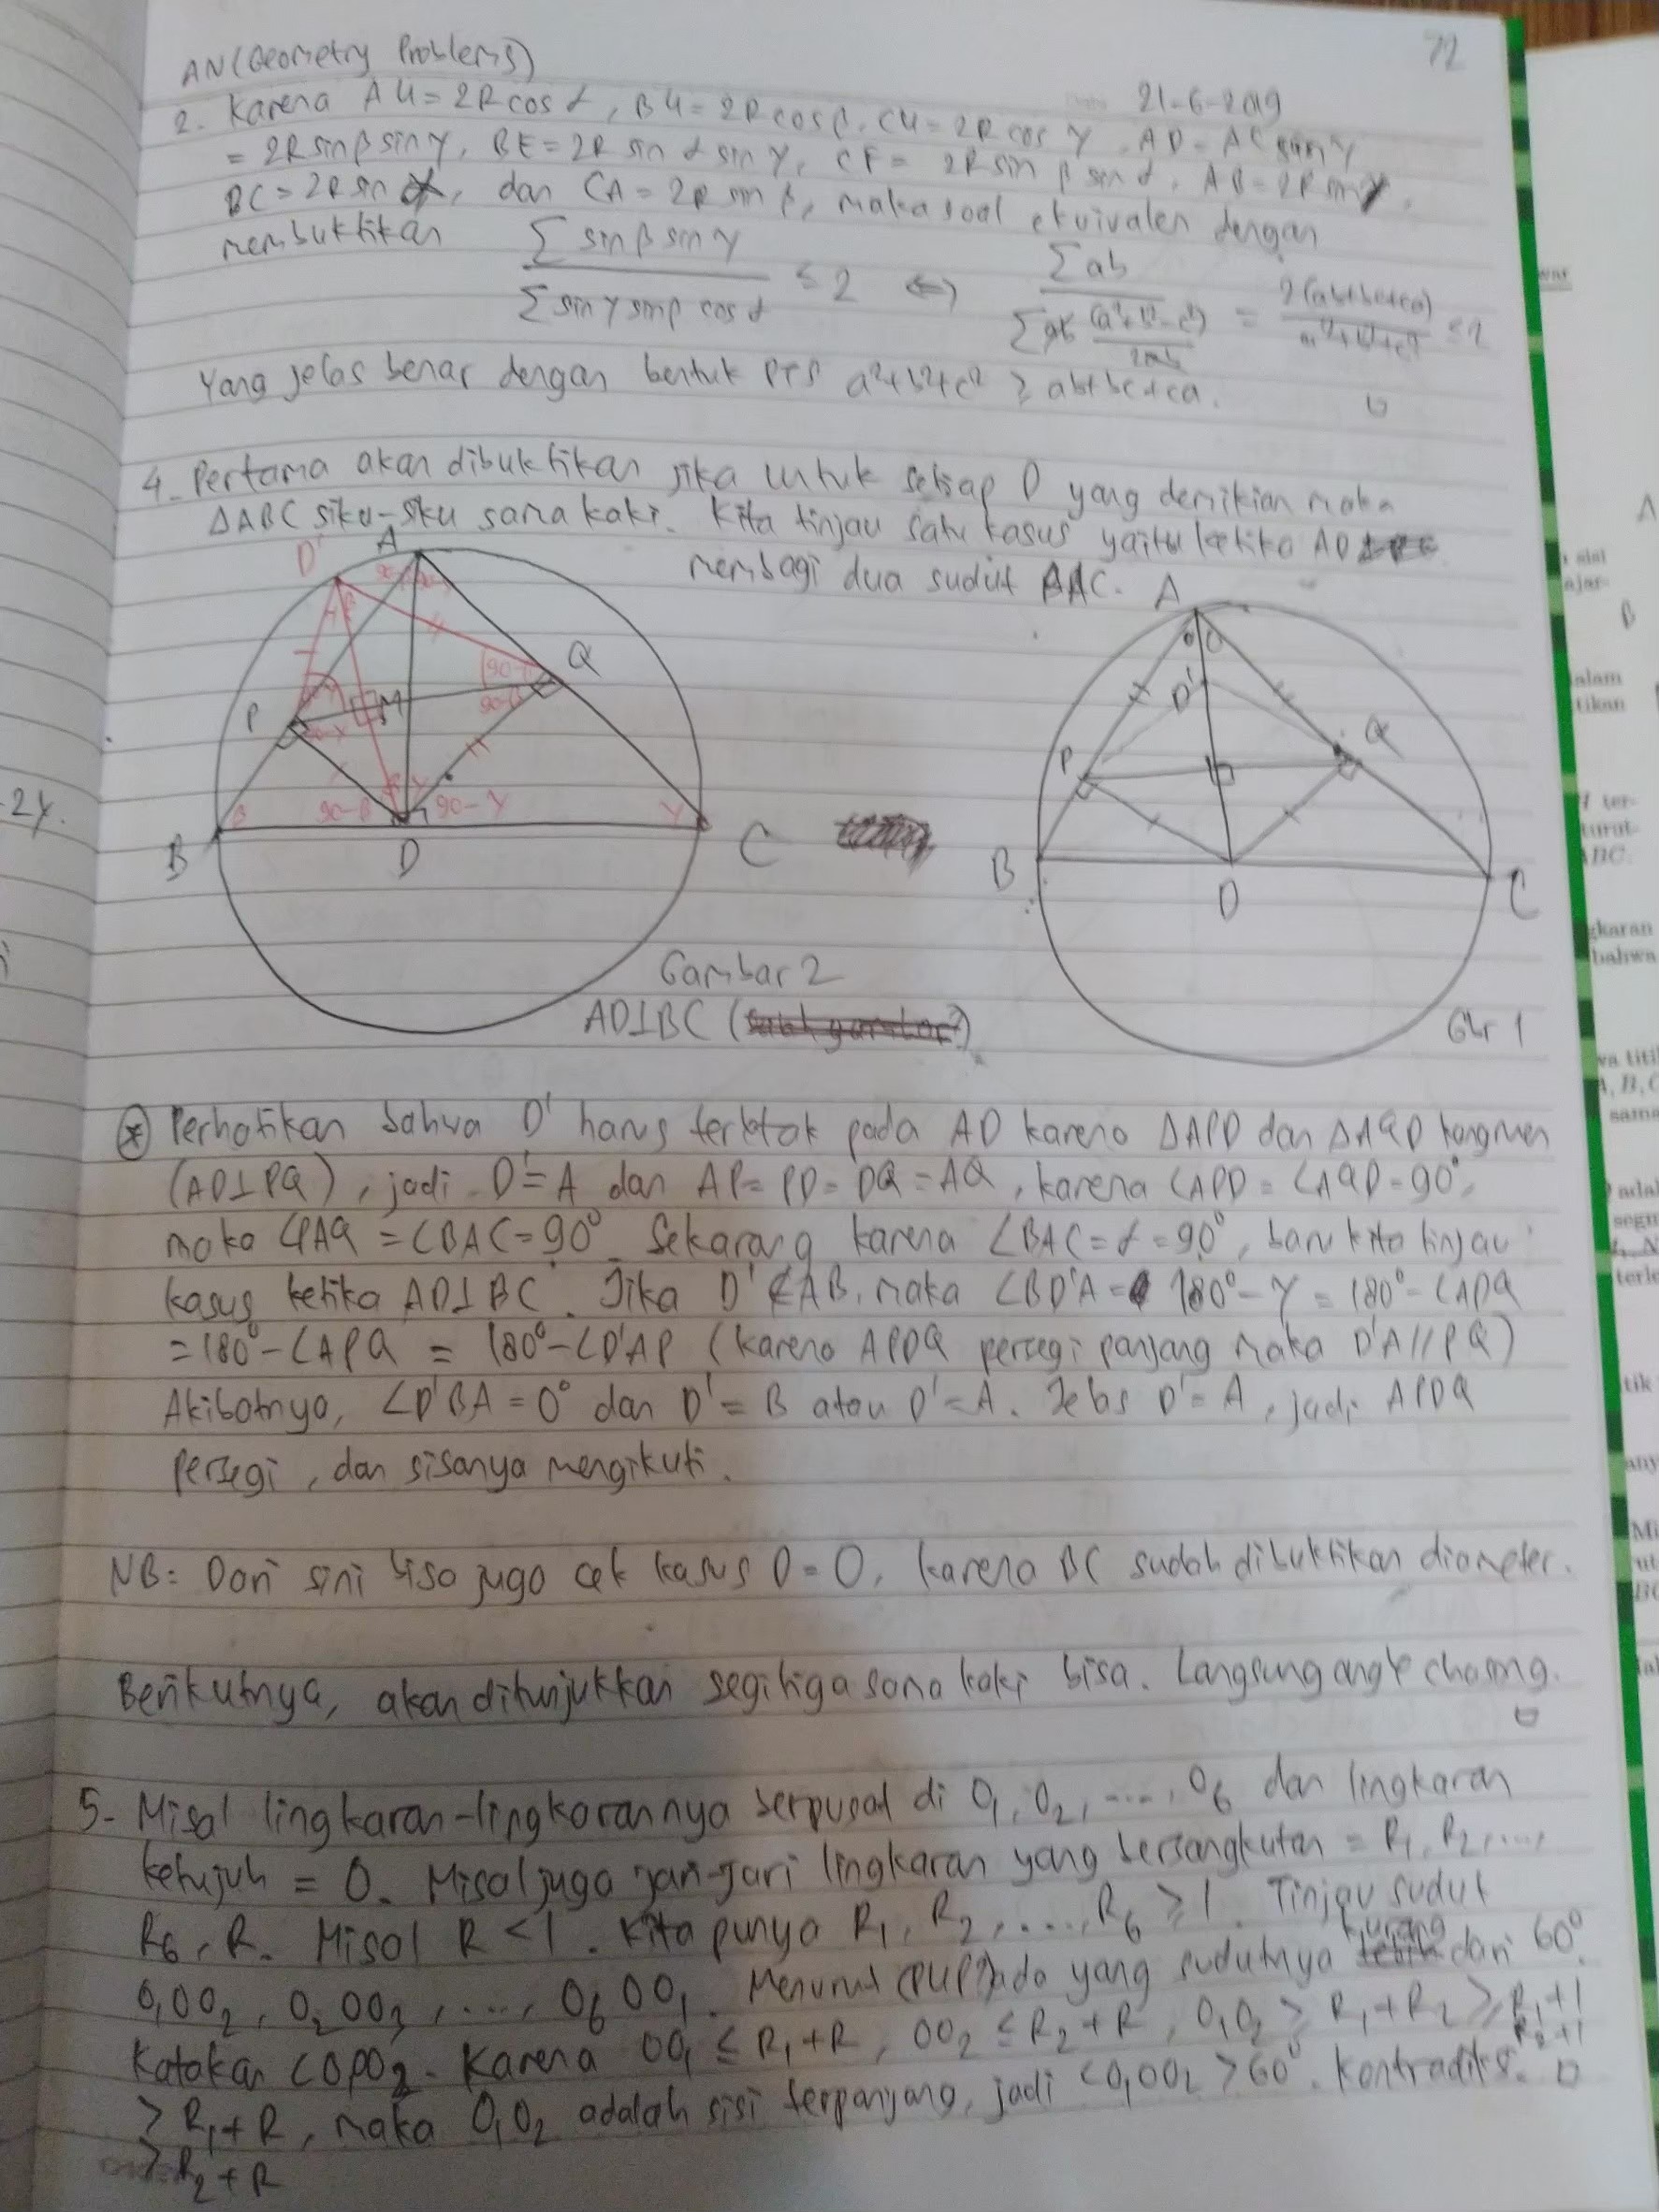 72
AN (Geometry Problems)
21-6-2019
2. Karena AH = 2R cos α, BH = 2R cos β, CH = 2R cos γ, AD = AC sin γ
= 2R sin β sin γ, BE = 2R sin α sin γ, CF = 2R sin β sin α, AB = 2R sin γ,
BC = 2R sin α, dan CA = 2R sin β, maka soal ekuivalen dengan
membuktikan Σ sin β sin γ / Σ sin γ sin β cos α ≤ 2 ⇔ Σ ab / Σ ab (a²+b²-c²)/2ab = 2(ab+bc+ca) / a²+b²+c² ≤ 2
Yang jelas benar dengan bentuk a²+b²+c² ≥ ab+bc+ca. □
4. Pertama akan dibuktikan jika untuk setiap D yang demikian maka
ΔABC siku-siku sama kaki. Kita tinjau satu kasus yaitu ketika AD
membagi dua sudut BAC.
D' A
Q
P M
90-β 90-γ
β γ
B D C
A
D'
P Q
B D C
Gambar 2
AD⊥BC
Gbr 1
* Perhatikan bahwa D' harus terletak pada AD karena ΔAPD dan ΔAQD kongruen
(AD⊥PQ), jadi D'=A dan AP=PD=DQ=AQ, karena ∠APD=∠AQD=90°,
maka ∠PAQ=∠BAC=90°. Sekarang karena ∠BAC=α=90°, baru kita tinjau
kasus ketika AD⊥BC. Jika D'∉AB, maka ∠BD'A = 180°-γ = 180°-∠ADQ
= 180°-∠APQ = 180°-∠D'AP (karena APDQ persegi panjang maka D'A//PQ)
Akibatnya, ∠D'BA=0° dan D'=B atau D'=A. Jelas D'=A, jadi APDQ
persegi, dan sisanya mengikuti.
NB: Dari sini bisa juga cek kasus D=O, karena BC sudah dibuktikan diameter.
Berikutnya, akan ditunjukkan segitiga sama kaki bisa. Langsung angle chasing. □
5. Misal lingkaran-lingkarannya berpusat di O₁, O₂, ...., O₆ dan lingkaran
ketujuh = O. Misal juga jari-jari lingkaran yang bersangkutan = R₁, R₂, ...,
R₆, R. Misal R < 1. Kita punya R₁, R₂, ...., R₆ ≥ 1. Tinjau sudut
O₁OO₂, O₂OO₃, ...., O₆OO₁. Menurut (PHP) ada yang sudutnya kurang dari 60°.
Katakan ∠O₁OO₂. Karena OO₁ ≤ R₁+R, OO₂ ≤ R₂+R, O₁O₂ ≥ R₁+R₂ ≥ R₁+1
R₂+1
> R₁+R, maka O₁O₂ adalah sisi terpanjang, jadi ∠O₁OO₂ > 60°. Kontradiksi. □
> R₂+R